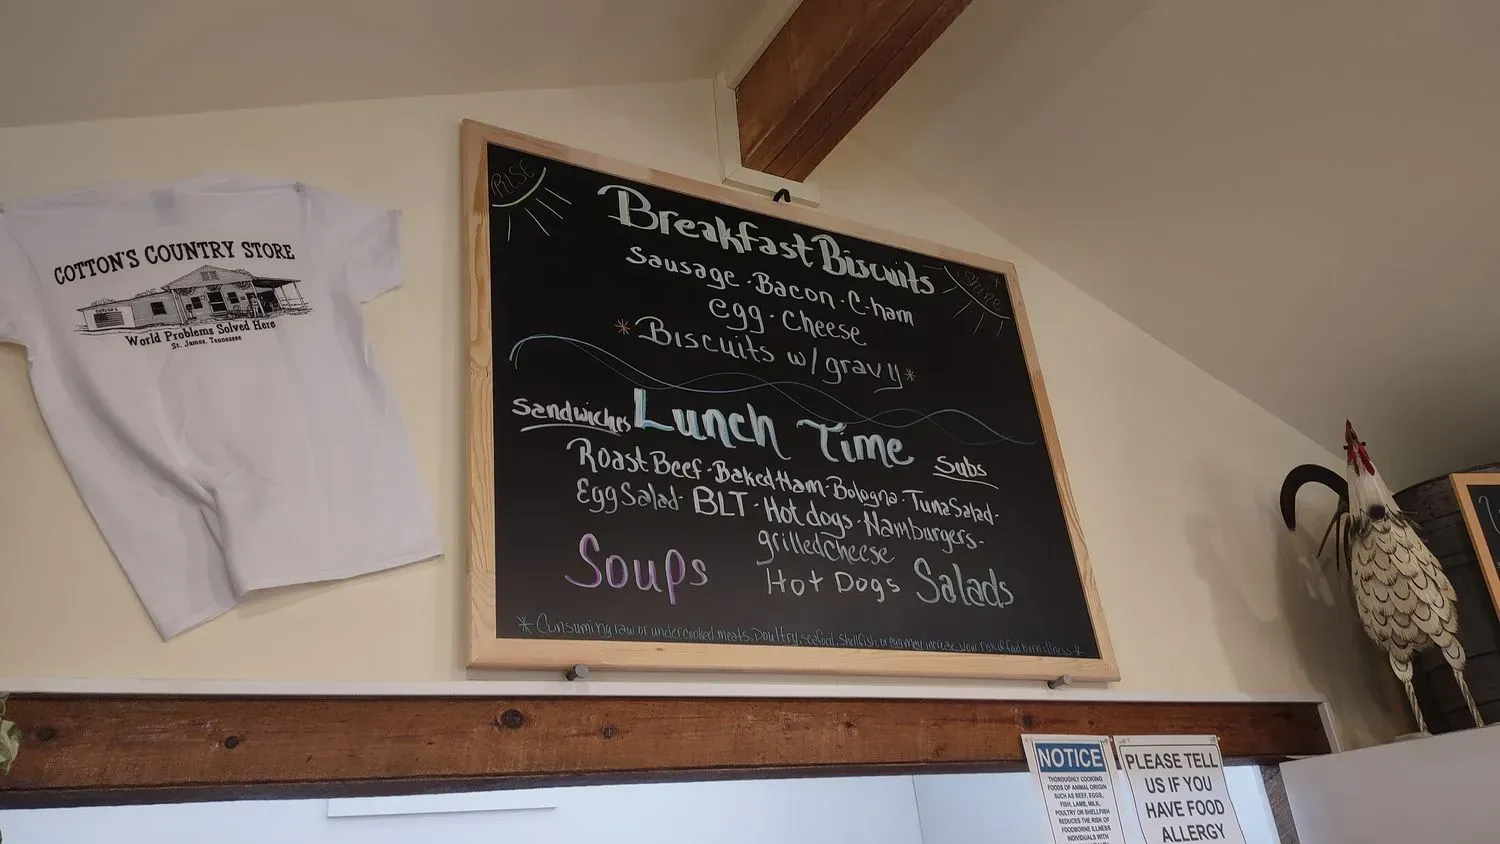 COTTON'S COUNTRY STORE
World Problems Solved Here
St. James, Tennessee
RISE
Shine
Breakfast Biscuits
Sausage · Bacon · C-ham
Egg · Cheese
*Biscuits w/ gravy*
Sandwiches Lunch Time Subs
Roast Beef · Baked Ham · Bologna · Tuna Salad ·
Egg Salad · BLT · Hot dogs · Hamburgers ·
grilled cheese
Soups Hot Dogs Salads
* Consuming raw or undercooked meats, poultry, seafood, shellfish, or egg may increase your risk of food born illness *
NOTICE
THOROUGHLY COOKING
FOODS OF ANIMAL ORIGIN
SUCH AS BEEF, EGGS,
FISH, LAMB, MILK,
POULTRY OR SHELLFISH
REDUCES THE RISK OF
FOODBORNE ILLNESS
INDIVIDUALS WITH
PLEASE TELL
US IF YOU
HAVE FOOD
ALLERGY